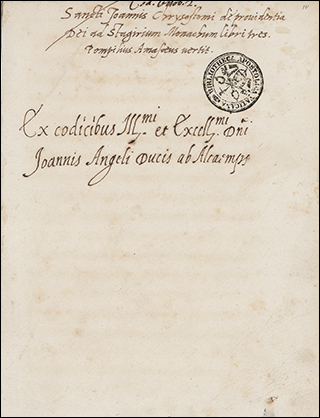 Sancti Joannis Chrysostomi de providentia
Dei ad Stagirium Monachum libri tres.
Pompilius Amasæus vertit.
BIBLIOTHECA APOSTOLICA VATICANA
Ex codicibus Ill.mi et Excell.mi Dñi
Joannis Angeli Ducis ab Altaemps